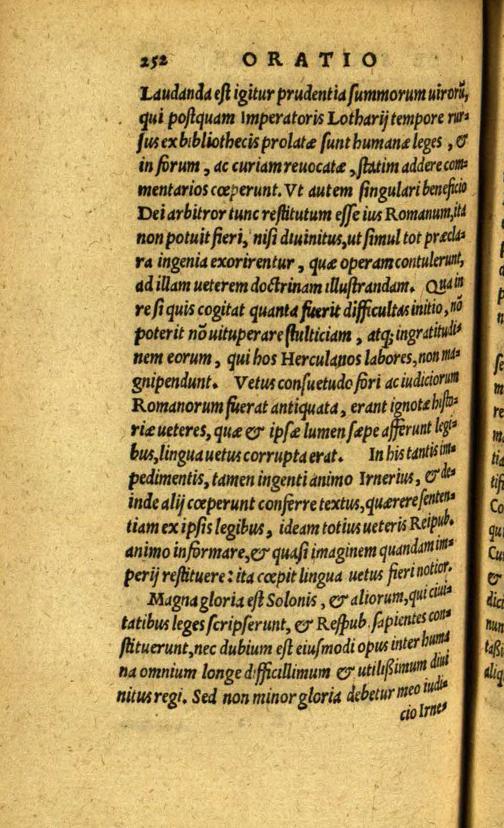 252 ORATIO
Laudanda est igitur prudentia summorum uirorũ,
qui postquam Imperatoris Lotharij tempore rur-
sus ex bibliothecis prolatæ sunt humanæ leges, &
in forum, ac curiam reuocatæ, statim addere com-
mentarios cœperunt. Vt autem singulari beneficio
Dei arbitror tunc restitutum esse ius Romanum, ita
non potuit fieri, nisi diuinitus, ut simul tot præcla-
ra ingenia exorirentur, quæ operam contulerunt,
ad illam ueterem doctrinam illustrandam. Qua in
re si quis cogitat quanta fuerit difficultas initio, nõ
poterit nõ uituperare stulticiam, atq; ingratitudi-
nem eorum, qui hos Herculanos labores, non ma-
gnipendunt. Vetus consuetudo fori ac iudiciorum
Romanorum fuerat antiquata, erant ignotæ histo-
riæ ueteres, quæ & ipsæ lumen sæpe afferunt legi-
bus, lingua uetus corrupta erat. In his tantis im-
pedimentis, tamen ingenti animo Irnerius, & de-
inde alij cœperunt conferre textus, quærere senten-
tiam ex ipsis legibus, ideam totius ueteris Reipub.
animo informare, & quasi imaginem quandam im-
perij restituere: ita cœpit lingua uetus fieri notior.
Magna gloria est Solonis, & aliorum, qui ciui-
tatibus leges scripserunt, & Respub. sapientes con-
stituerunt, nec dubium est eiusmodi opus inter huma
na omnium longe difficillimum & utilissimum diui
nitus regi. Sed non minor gloria debetur meo iudi-
cio Irne-